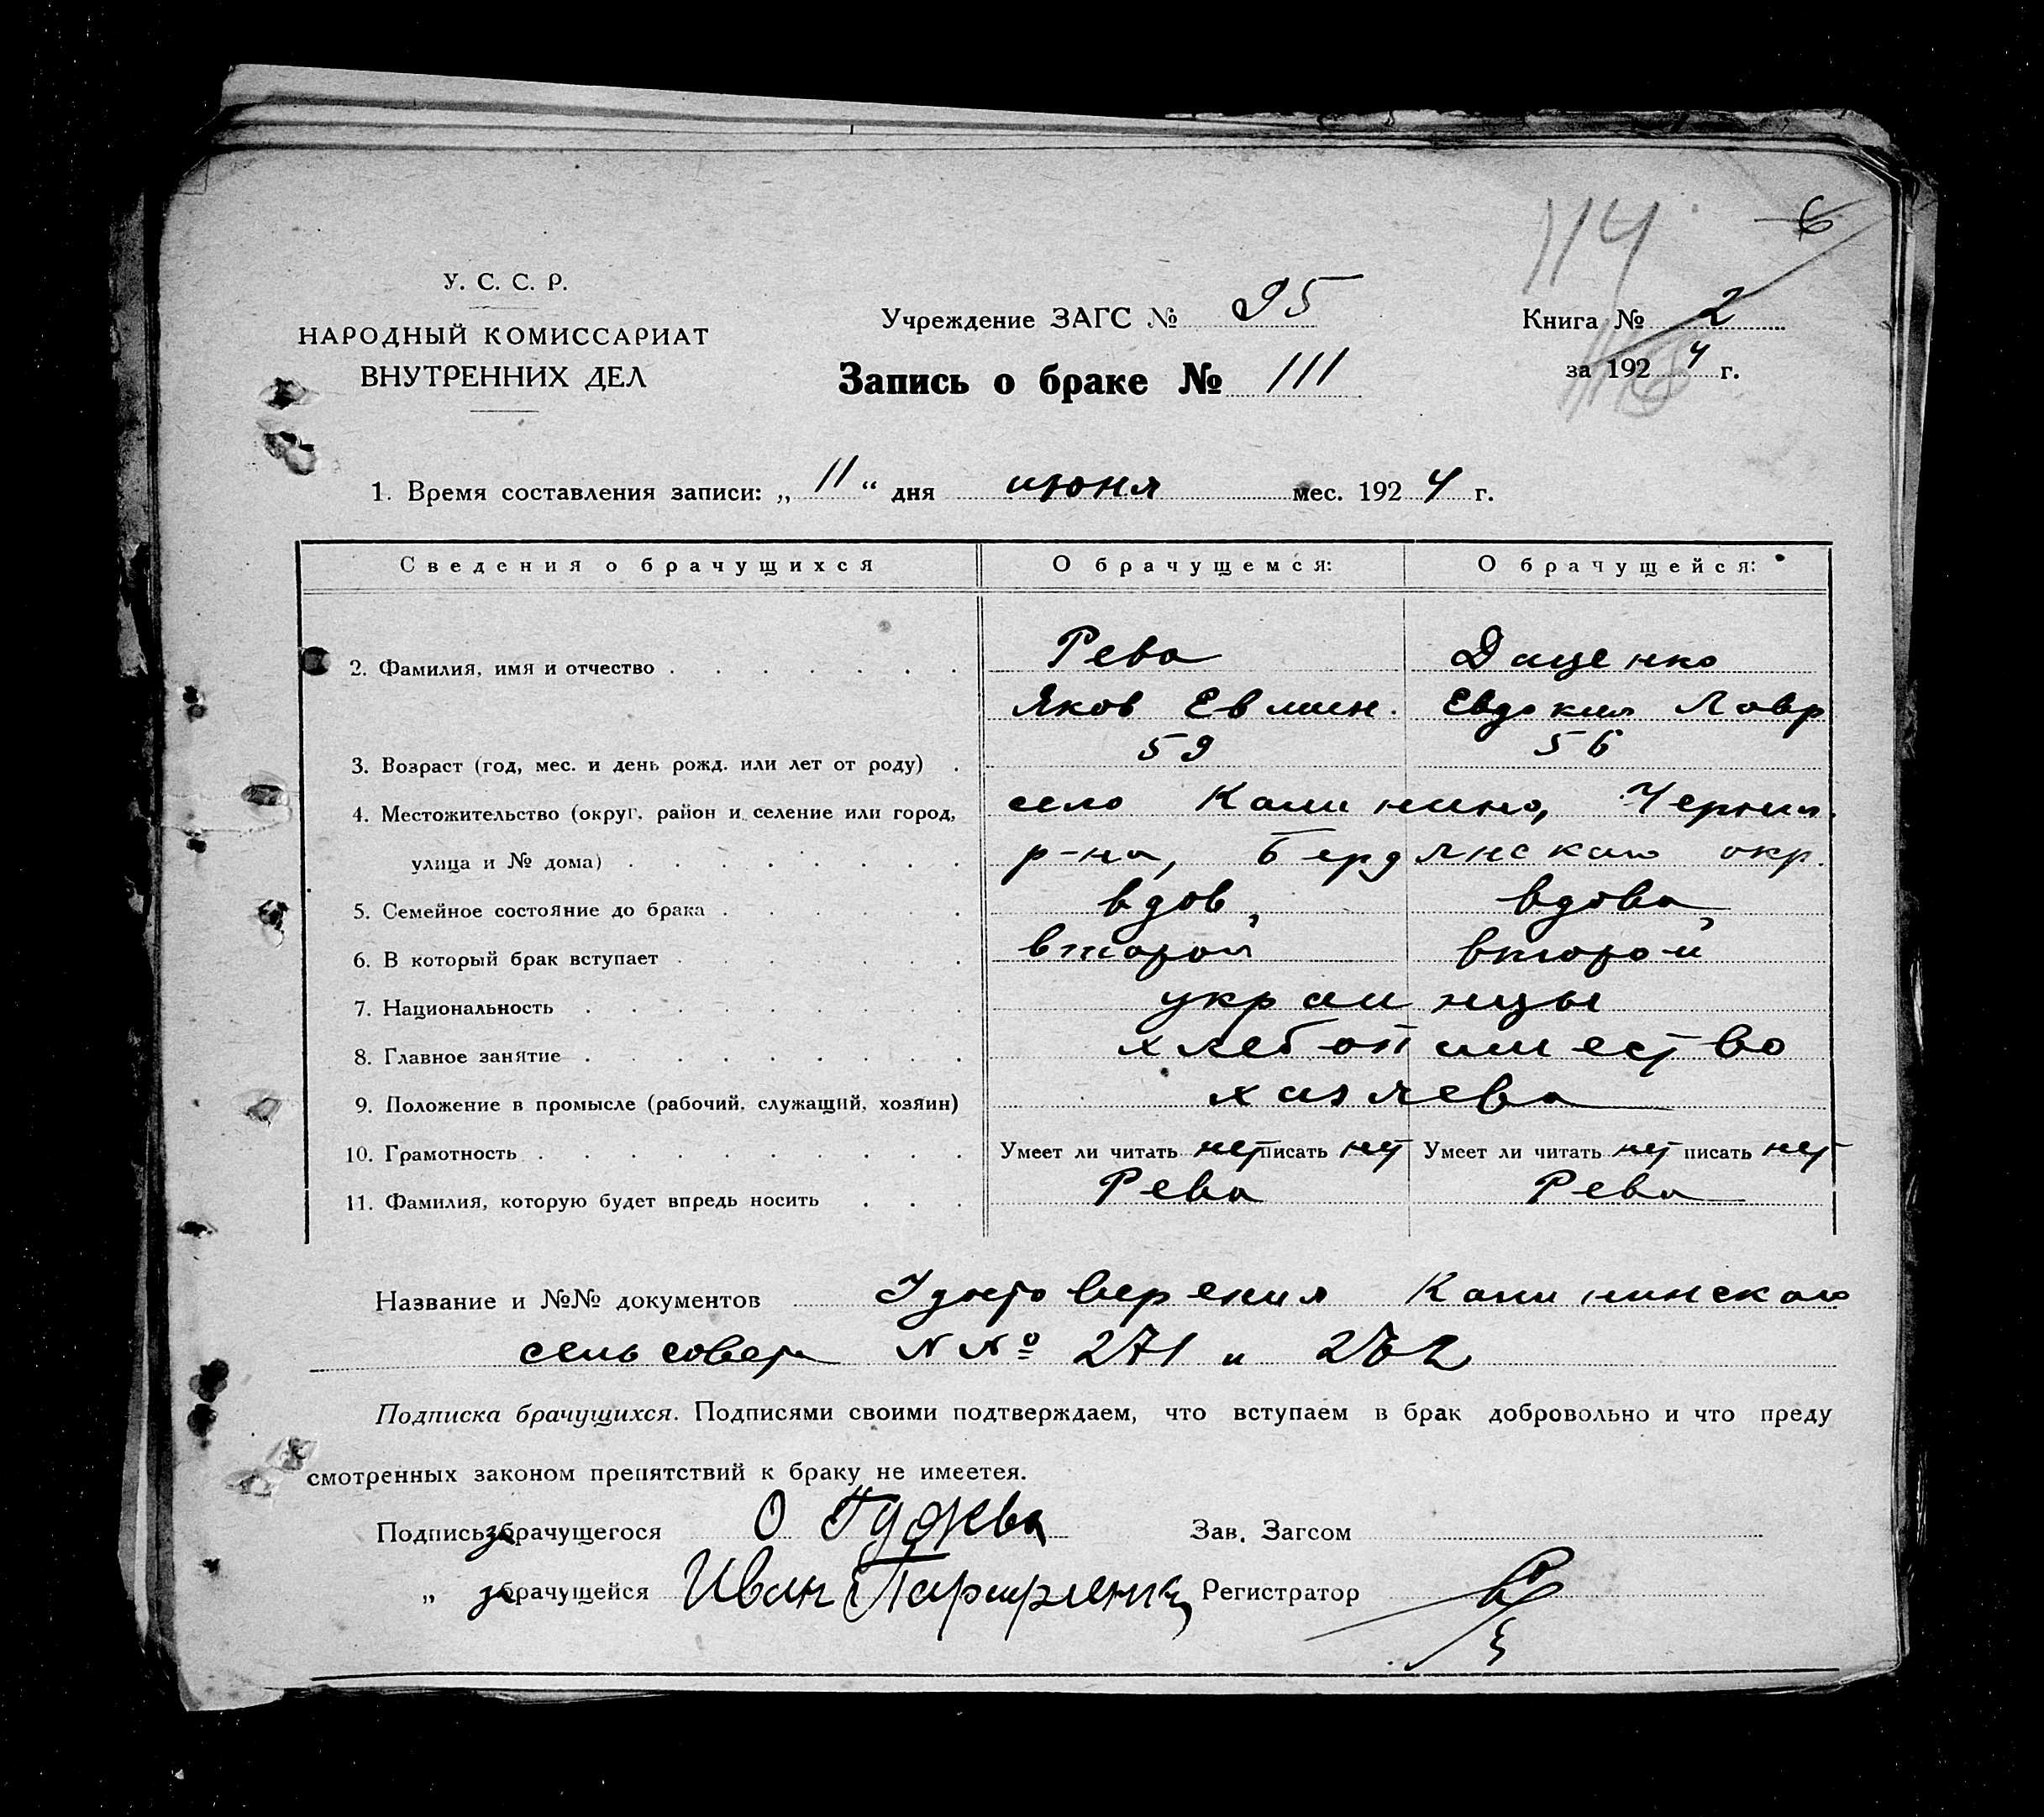 114
6
У. С. С. Р.
НАРОДНЫЙ КОМИССАРИАТ
ВНУТРЕННИХ ДЕЛ
Учреждение ЗАГС № 95
Запись о браке № 111
Книга № 2
за 1924 г.
1. Время составления записи: „ 11 “ дня июня мес. 1924 г.
Сведения о брачущихся О брачущемся: О брачущейся:
2. Фамилия, имя и отчество Рева Даценко
Яков Евмин. Евдокия Лавр
3. Возраст (год, мес. и день рожд. или лет от роду) 59 56
4. Местожительство (округ, район и селение или город, село Калинино, Черниг.
улица и № дома) р-на, Бердянскаго окр.
5. Семейное состояние до брака вдов, вдова,
6. В который брак вступает второй второй
7. Национальность украинцы
8. Главное занятие хлебопашество
9. Положение в промысле (рабочий, служащий, хозяин) хазяева
10. Грамотность Умеет ли читать нет писать нет Умеет ли читать нет писать нет
11. Фамилия, которую будет впредь носить Рева Рева
Название и №№ документов Удостоверения Калининскаго
сельсовета №№ 271 и 272
Подписка брачущихся. Подписями своими подтверждаем, что вступаем в брак добровольно и что преду
смотренных законом препятствий к браку не имеетея.
Подпись за брачущегося О Зав. Загсом
„ за брачущейся Иван Регистратор